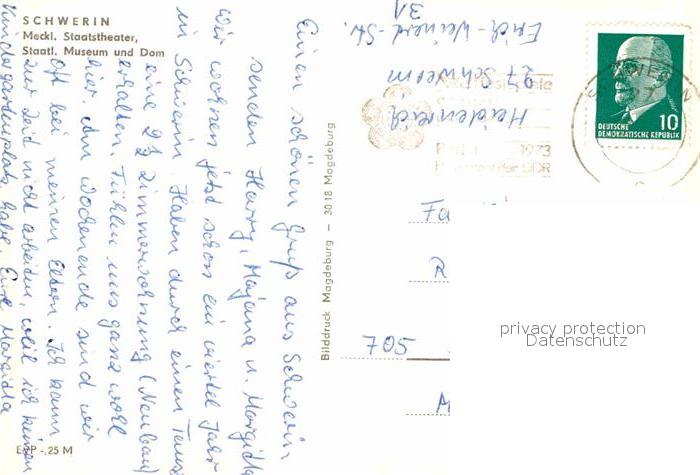 SCHWERIN
Meckl. Staatstheater,
Staatl. Museum und Dom
Einen schönen Gruß aus Schwerin
senden Harry, Marjana u. Margitta
Wir wohnen jetzt schon ein viertel Jahr
in Schwerin. Haben durch einen Tausch
eine 2½ Zimmerwohnung (Neubau)
erhalten. Fühlen uns ganz wohl
hier. Am Wochenende sind wir
oft bei meinen Eltern. Ich kann
zur Zeit nicht arbeiten, weil ich keinen
Kindergartenplatz habe. Eure Margitta
EVP -,25 M
Bilddruck Magdeburg – 3018 Magdeburg
Heidenreich
27 Schwerin
Erich-Weinert-Str.
31
SCHWERIN
1973
DDR
10
DEUTSCHE
DEMOKRATISCHE REPUBLIK
Fa
R
705
privacy protection
Datenschutz